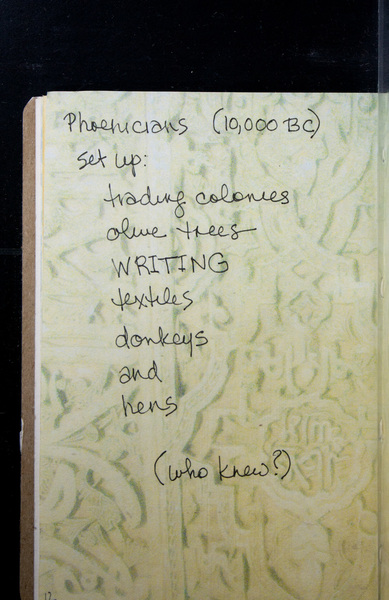 Phoenicians (10,000 BC)
set up:
trading colonies
olive trees
WRITING
textiles
donkeys
and
hens
(who knew?)